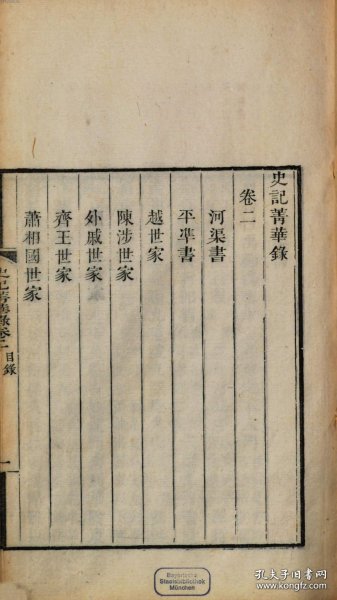 史記菁華錄
卷二
河渠書
平準書
越世家
陳涉世家
外戚世家
齊王世家
蕭相國世家
史記菁華錄卷二 目錄 一
Bayerische
Staatsbibliothek
München
孔夫子旧书网